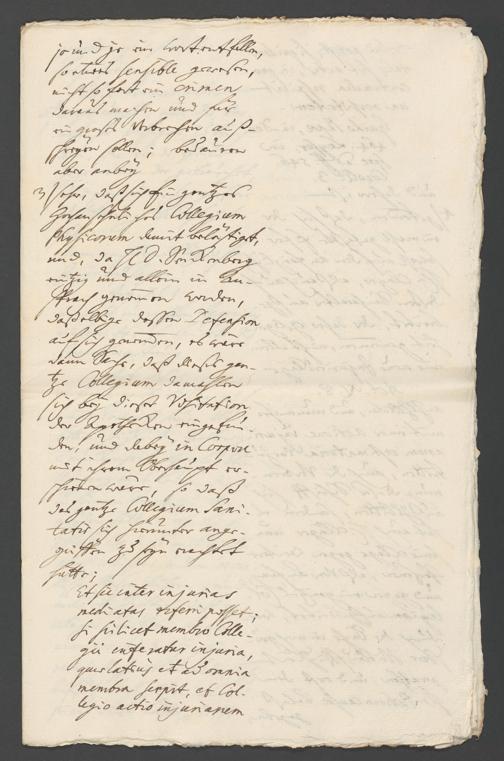 je und je ein wort entfallen,
so etwas sensible gewesen,
nicht so fort ein crimen
daraus machen und für
ein großes Verbrechen auß-
schreyen sollen; bedauren
aber anbey
3) sehr, daß sich ein gantzes
Collegium
Physicorum damit belästiget,
und, da H. D. Senckenberg
eintzig und allein in An-
spruch genommen worden,
daßelbige dessen Defension
auf sich genommen, es wäre
dann Sache, daß dieses gan-
tze Collegium damahlen
sich bey dieser Visitation
der Apothecken eingefun-
den, und dabey in Corpore
mit ihrem Oberhaupt er-
schienen wäre, so daß
das gantze Collegium Sani-
tatis sich hierunter ange-
griffen zu seyn erachtet
hätte;
Et sic inter injurias
mediatas referri posset;
si scilicet membro Colle-
gii inferatur injuria,
quae latius et ad omnia
membra serpit, et Col-
legio actio injuriarum